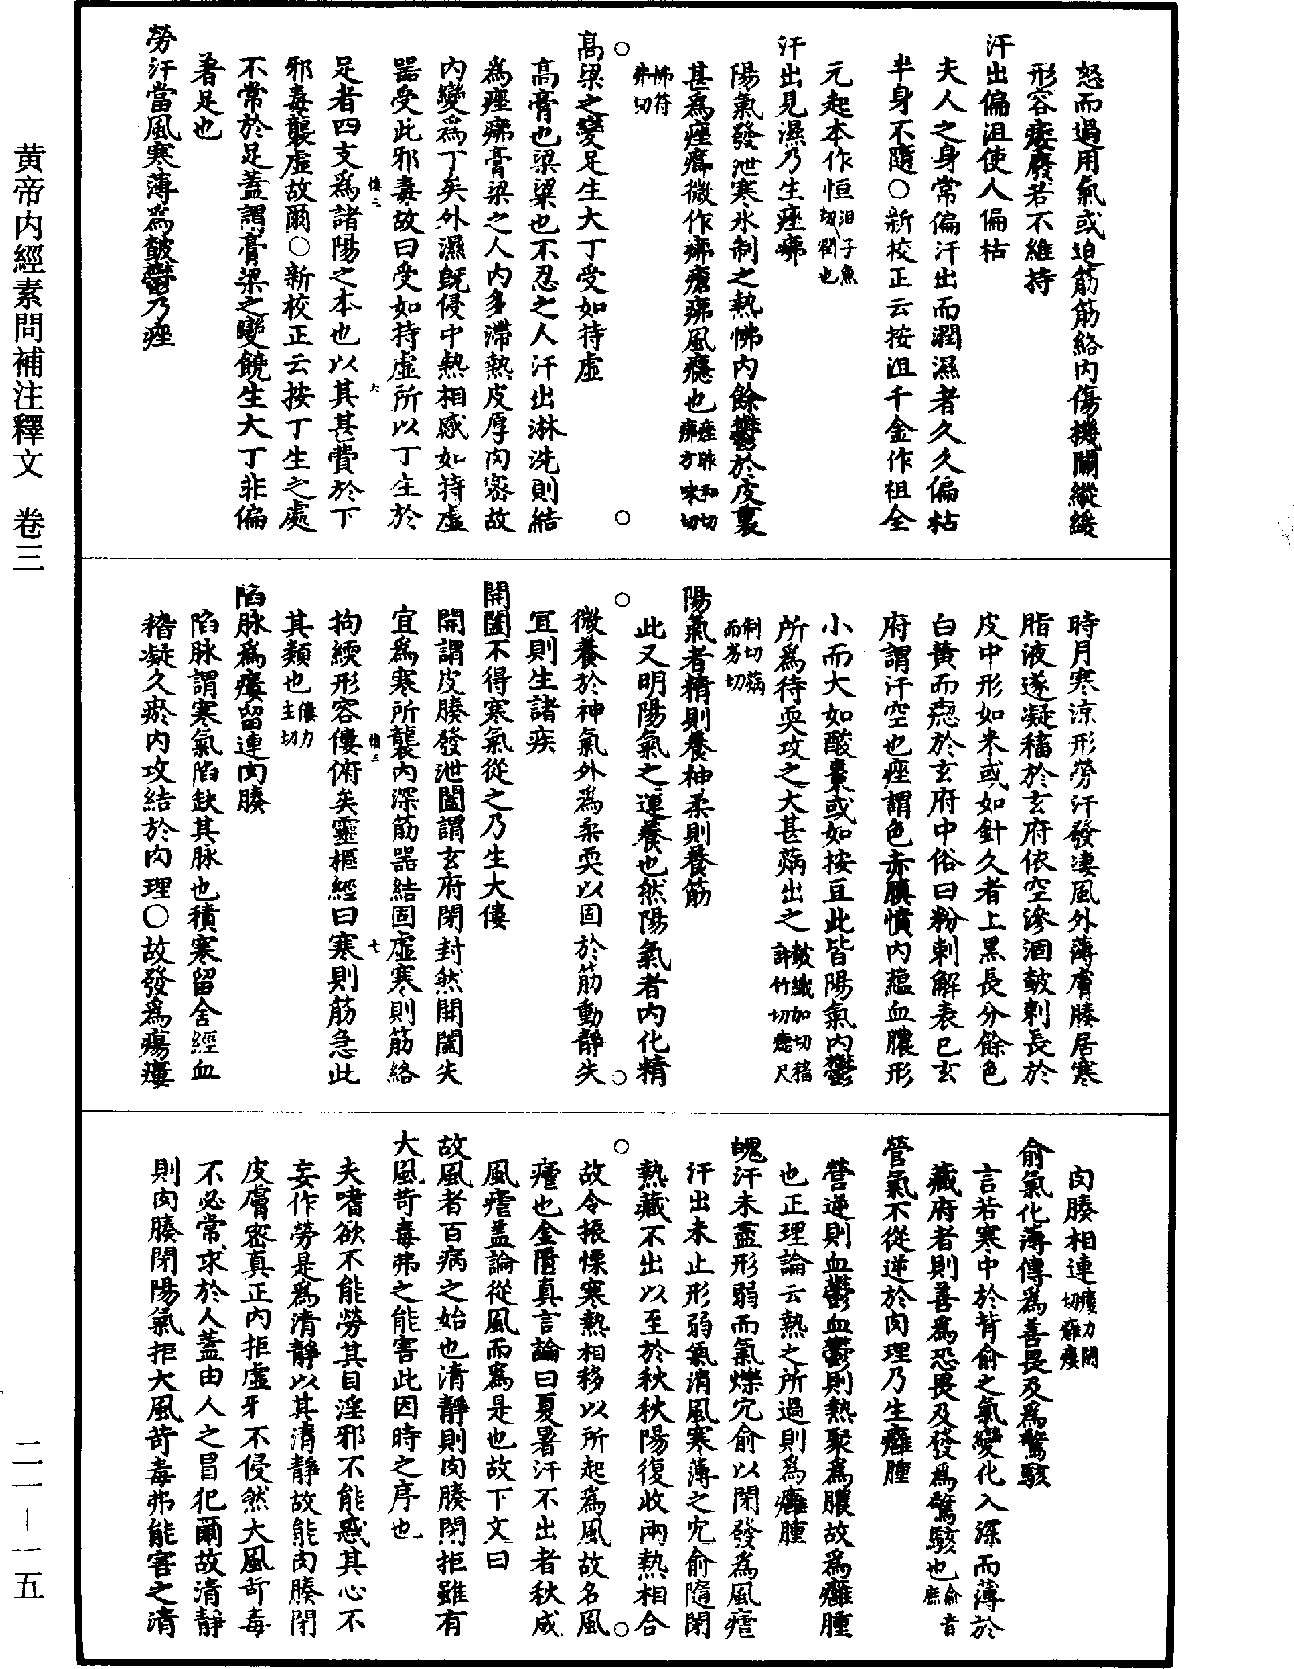 怒而過用氣或迫筋筋絡內傷機關縱緩
形容痿廢若不維持
汗出偏沮使人偏枯
夫人之身常偏汗出而潤濕者久久偏枯
半身不隨○新校正云按沮千金作祖全
元起本作恒沮子魚切潤也
汗出見濕乃生痤疿
陽氣發泄寒水制之熱怫內餘鬱於皮裏
甚為痤癤微作疿瘡疿風癮也痤昨和切癤方味切
怫符弗切
高梁之變足生大丁受如持虛
高膏也梁粱也不忍之人汗出淋洗則結
為痤疿膏梁之人內多滯熱皮厚肉密故
內變為丁矣外濕既侵中熱相感如持虛
器受此邪毒故曰受如持虛所以丁生於
足者四支為諸陽之本也以其甚費於下
邪毒襲虛故爾○新校正云按丁生之處
不常於足蓋謂膏梁之變饒生大丁非偏
著足也
勞汗當風寒薄為皶鬱乃痤
時月寒涼形勞汗發淒風外薄膚腠居寒
脂液遂凝稸於玄府依空滲涸皶刺長於
皮中形如米或如針久者上黑長分餘色
白黃而㾴於玄府中俗曰粉刺解表已玄
府謂汗空也痤謂色赤䐜憤內蘊血膿形
小而大如酸棗或如按豆此皆陽氣內鬱
所為待耎攻之大甚焫出之皶織加切稸許竹切㾴尺
制切焫而劣切
陽氣者精則養神柔則養筋
此又明陽氣之運養也然陽氣者內化精
微養於神氣外為柔耎以固於筋動靜失
宜則生諸疾
開闔不得寒氣從之乃生大僂
開謂皮腠發泄闔謂玄府閉封然開闔失
宜為寒所襲內深筋器結固虛寒則筋絡
拘緛形容僂俯矣靈樞經曰寒則筋急此
其類也僂力主切
陷脉為瘻留連肉腠
陷脉謂寒氣陷缺其脉也積寒留舍經血
稽凝久瘀內攻結於肉理○故發為瘍瘻
肉腠相連瘻力鬬切
俞氣化薄傳為善畏及為驚駭
言若寒中於背俞之氣變化入深而薄於
藏府者則善為恐畏及發為驚駭也俞音庶
營氣不從逆於肉理乃生癰腫
營逆則血鬱血鬱則熱聚為膿故為癰腫
也正理論云熱之所過則為癰腫
魄汗未盡形弱而氣爍穴俞以閉發為風瘧
汗出未止形弱氣消風寒薄之穴俞隨閉
熱藏不出以至於秋秋陽復收兩熱相合
故令振慄寒熱相移以所起為風故名風
瘧也金匱真言論曰夏暑汗不出者秋成
風瘧蓋論從風而為是也故下文曰
故風者百病之始也清靜則肉腠閉拒雖有
大風苛毒弗之能害此因時之序也
夫嗜欲不能勞其目淫邪不能惑其心不
妄作勞是為清靜以其清靜故能肉腠閉
皮膚密真正內拒虛牙不侵然大風苛毒
不必常求於人蓋由人之冒犯爾故清靜
則肉腠閉陽氣拒大風苛毒弗能害之清
黃帝內經素問補注釋文 卷三
二一—一五